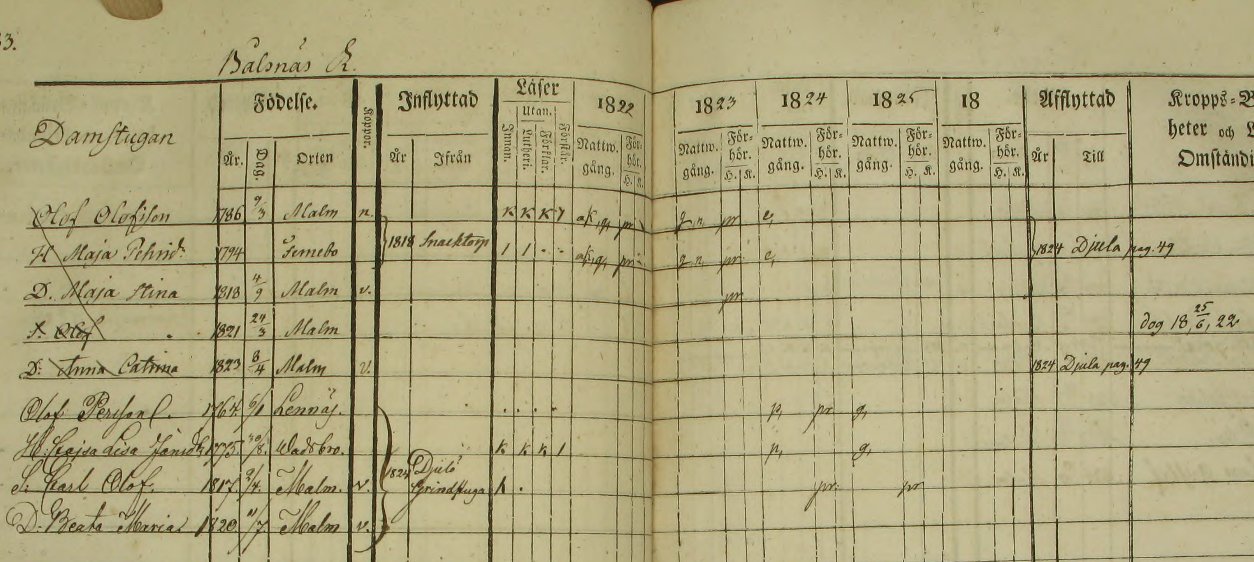 33.
Balsnäs R.
Damstugan
Födelse.
Koppor.
Inflyttad
Läser
1822
1823
1824
1825
18
Afflyttad
Kropps-
År.
Dag.
Orten
År
Ifrån
Innan.
Utan.
Lutheri.
Förklar.
Förstår.
Nattw. gång.
För-hör.
H. K.
Nattw. gång.
För-hör.
H. K.
Nattw. gång.
För-hör.
H. K.
Nattw. gång.
För-hör.
H. K.
Nattw. gång.
För-hör.
H. K.
År
Till
heter och
Omständi
Olof Olofsson 1786 9/3 Malm n. K K K pr pr
H Maja Pehrsd. 1794 1818 1 1 pr pr 1824 Djula pag. 49
D. Maja Stina 1818 4/9 Malm v. pr
S. Olof 1821 24/3 Malm dog 18 25/6 22
D: Anna Catrina 1823 8/4 Malm v. 1824 Djula pag. 49
Olof Persson 1764 6/1 Lennäs. pr
H: Cajsa Lisa Jansd. 1775 Wadsbro. K K K 1
S. Carl Olof. 1817. 9/4. Malm. v. 1824 Djulö Grindstuga pr. pr
D: Beata Maria 1820 11/7 Malm v.